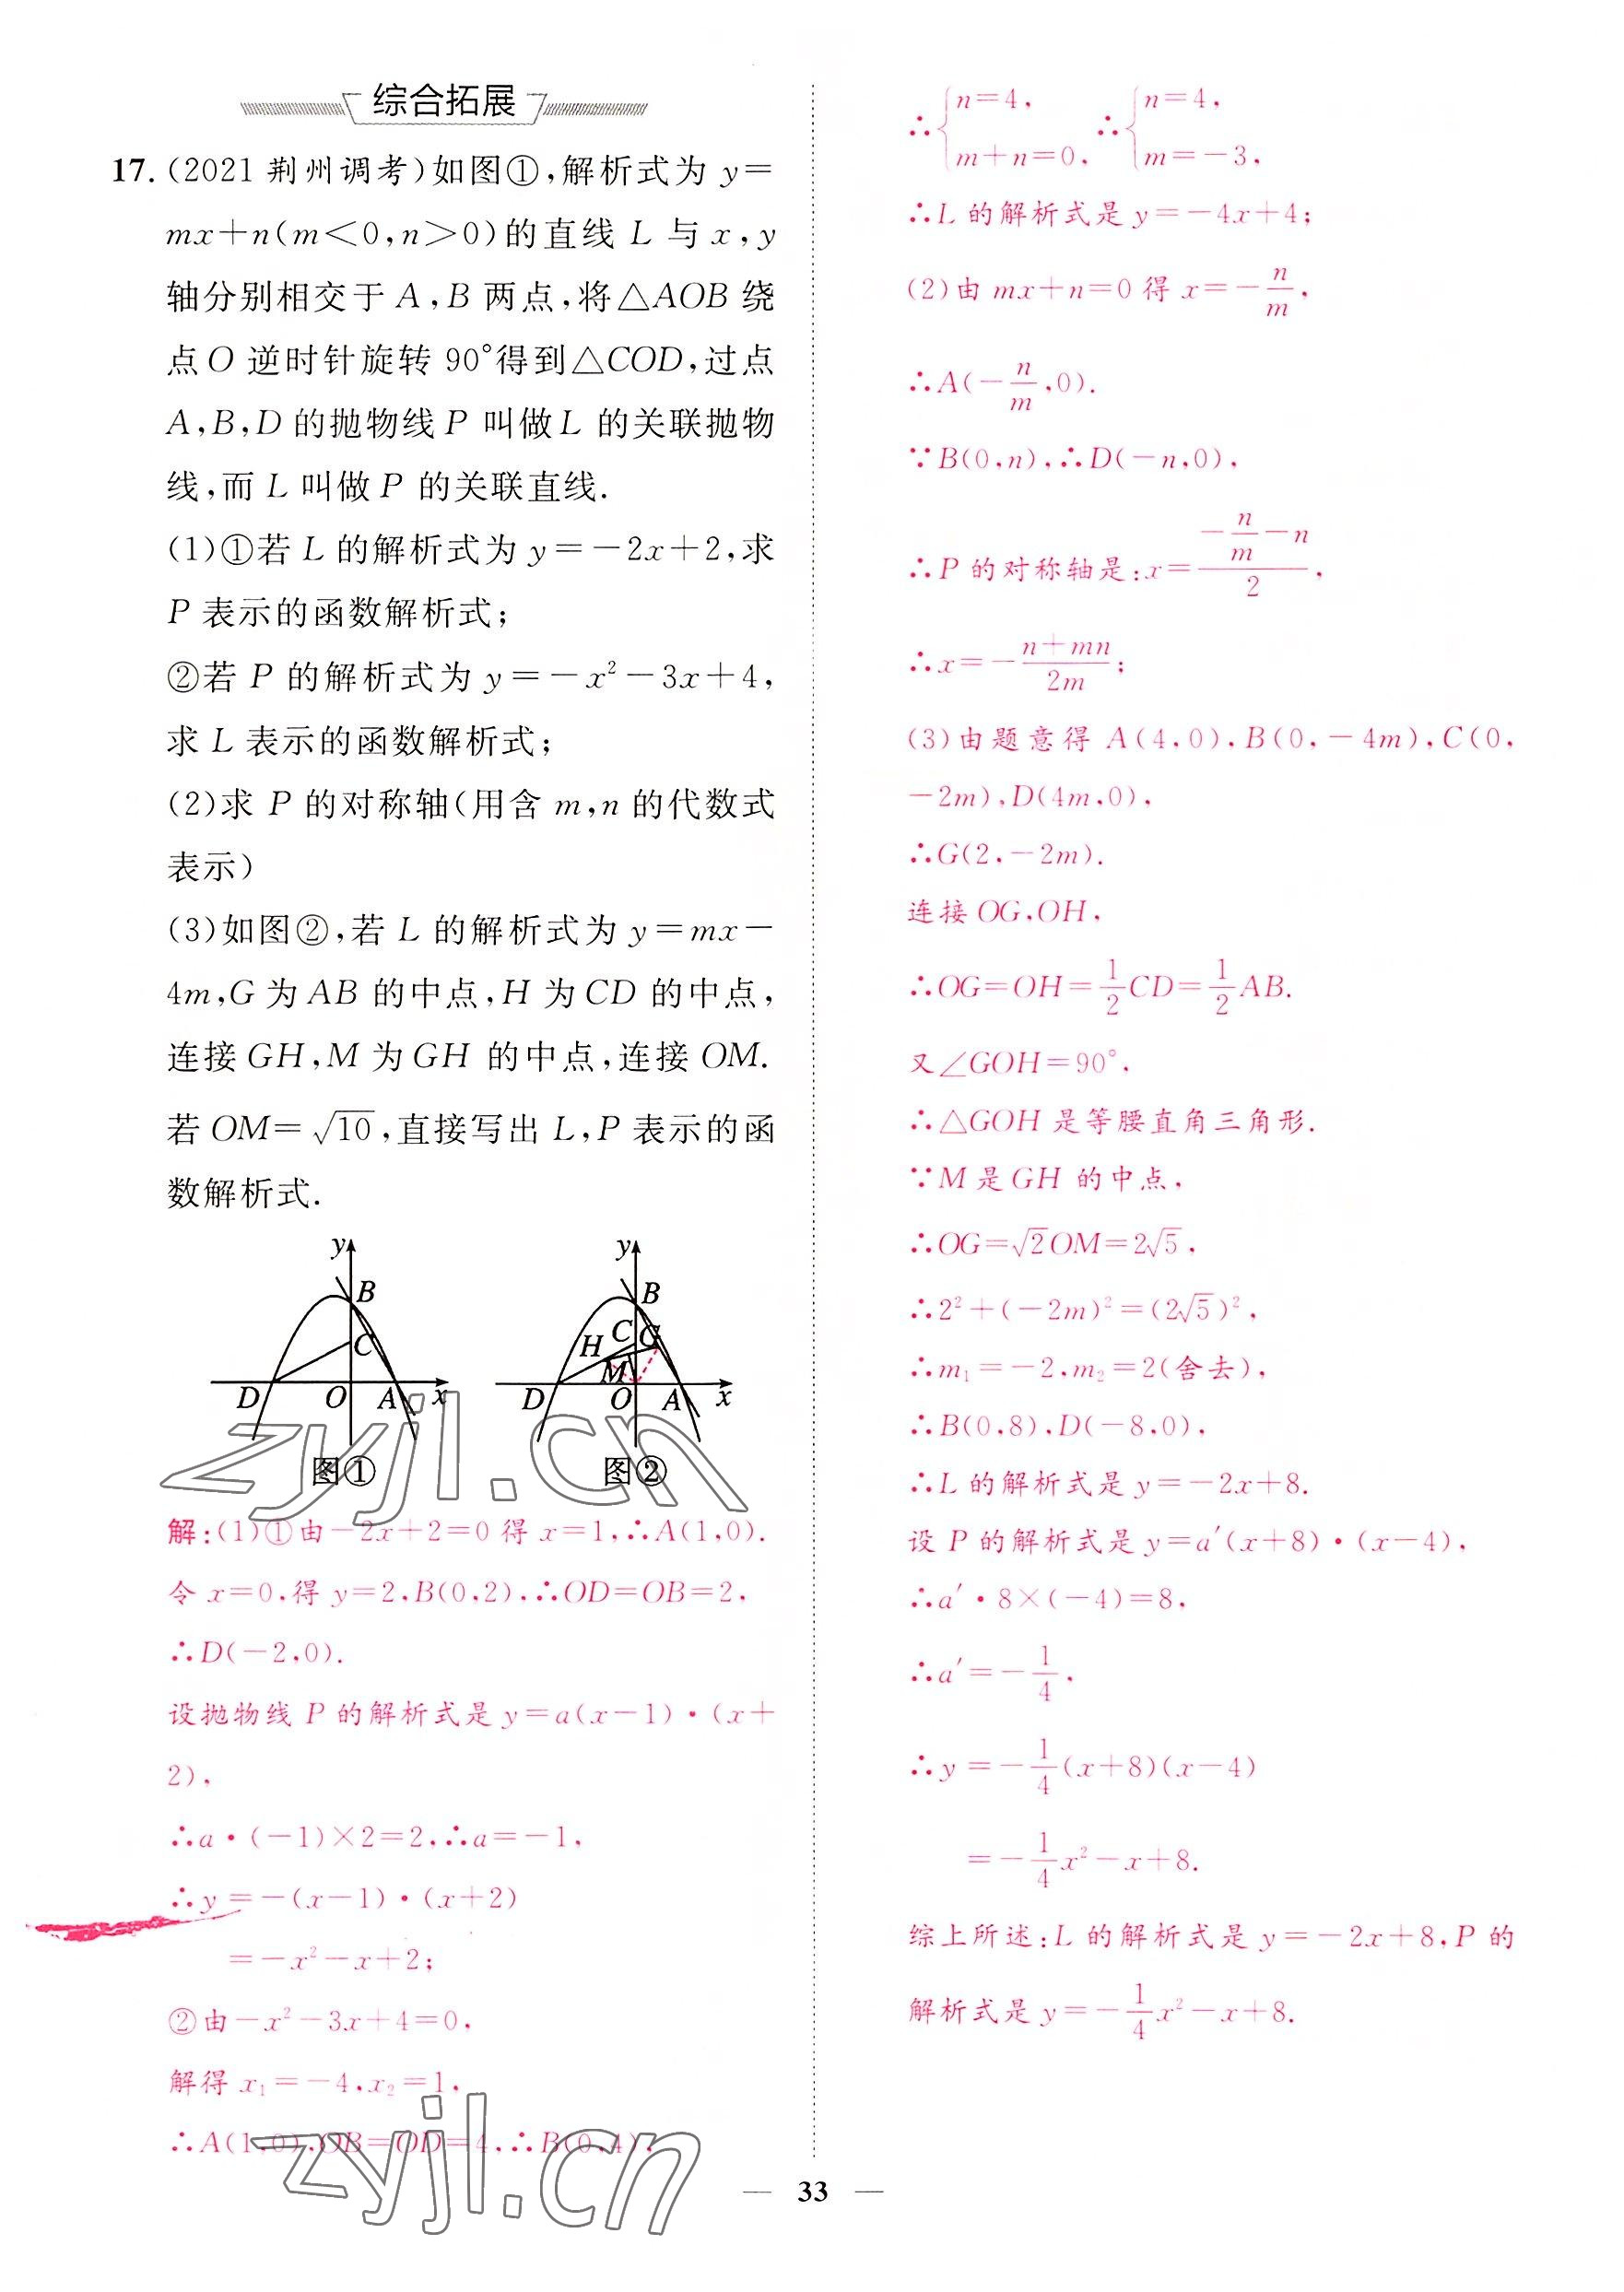 综合拓展
17.(2021荆州调考)如图①,解析式为 y=
mx+n(m<0,n>0)的直线 L 与 x,y
轴分别相交于 A,B 两点,将△AOB 绕
点 O 逆时针旋转 90°得到△COD,过点
A,B,D 的抛物线 P 叫做 L 的关联抛物
线,而 L 叫做 P 的关联直线.
(1)①若 L 的解析式为 y=-2x+2,求
P 表示的函数解析式;
②若 P 的解析式为 y=-x²-3x+4,
求 L 表示的函数解析式;
(2)求 P 的对称轴(用含 m,n 的代数式
表示)
(3)如图②,若 L 的解析式为 y=mx-
4m,G 为 AB 的中点,H 为 CD 的中点,
连接 GH,M 为 GH 的中点,连接 OM.
若 OM=√10,直接写出 L,P 表示的函
数解析式.
y B C D O A x
图①
y B C G H M D O A x
图②
zyjl.cn
解:(1)①由-2x+2=0 得 x=1,∴A(1,0).
令 x=0,得 y=2,B(0,2),∴OD=OB=2,
∴D(-2,0).
设抛物线 P 的解析式是 y=a(x-1)·(x+
2),
∴a·(-1)×2=2,∴a=-1,
∴y=-(x-1)·(x+2)
=-x²-x+2;
②由-x²-3x+4=0,
解得 x₁=-4,x₂=1,
∴A(1,0),OB=OD=4,∴B(0,4),
zyjl.cn
∴{n=4, m+n=0, ∴{n=4, m=-3,
∴L 的解析式是 y=-4x+4;
(2)由 mx+n=0 得 x=-n/m,
∴A(-n/m,0).
∵B(0,n),∴D(-n,0),
∴P 的对称轴是:x=(-n/m-n)/2,
∴x=-(n+mn)/2m;
(3)由题意得 A(4,0),B(0,-4m),C(0,
-2m),D(4m,0),
∴G(2,-2m).
连接 OG,OH,
∴OG=OH=1/2CD=1/2AB.
又∠GOH=90°,
∴△GOH 是等腰直角三角形.
∵M 是 GH 的中点,
∴OG=√2OM=2√5,
∴2²+(-2m)²=(2√5)²,
∴m₁=-2,m₂=2(舍去),
∴B(0,8),D(-8,0),
∴L 的解析式是 y=-2x+8.
设 P 的解析式是 y=a′(x+8)·(x-4),
∴a′·8×(-4)=8,
∴a′=-1/4,
∴y=-1/4(x+8)(x-4)
=-1/4x²-x+8.
综上所述:L 的解析式是 y=-2x+8,P 的
解析式是 y=-1/4x²-x+8.
— 33 —